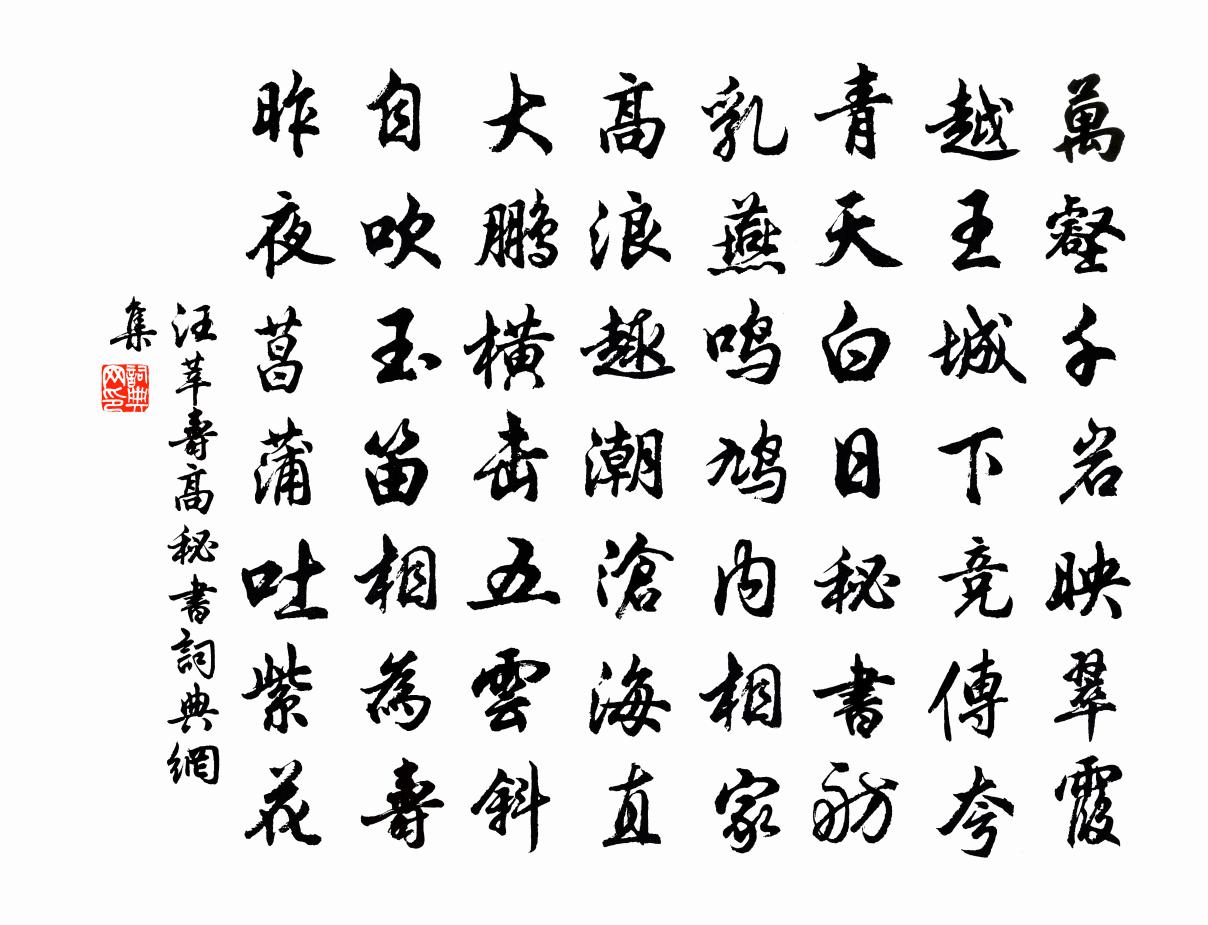 萬壑千岩映翠霞
越王城下竞傳夸
青天白日秘書舫
乳燕鸣鸠内相家
高浪趣潮滄海直
大鹏横击五雲斜
自吹玉笛相為壽
昨夜菖蒲吐紫花
汪莘壽高秘書詞典網
集
詞典網印